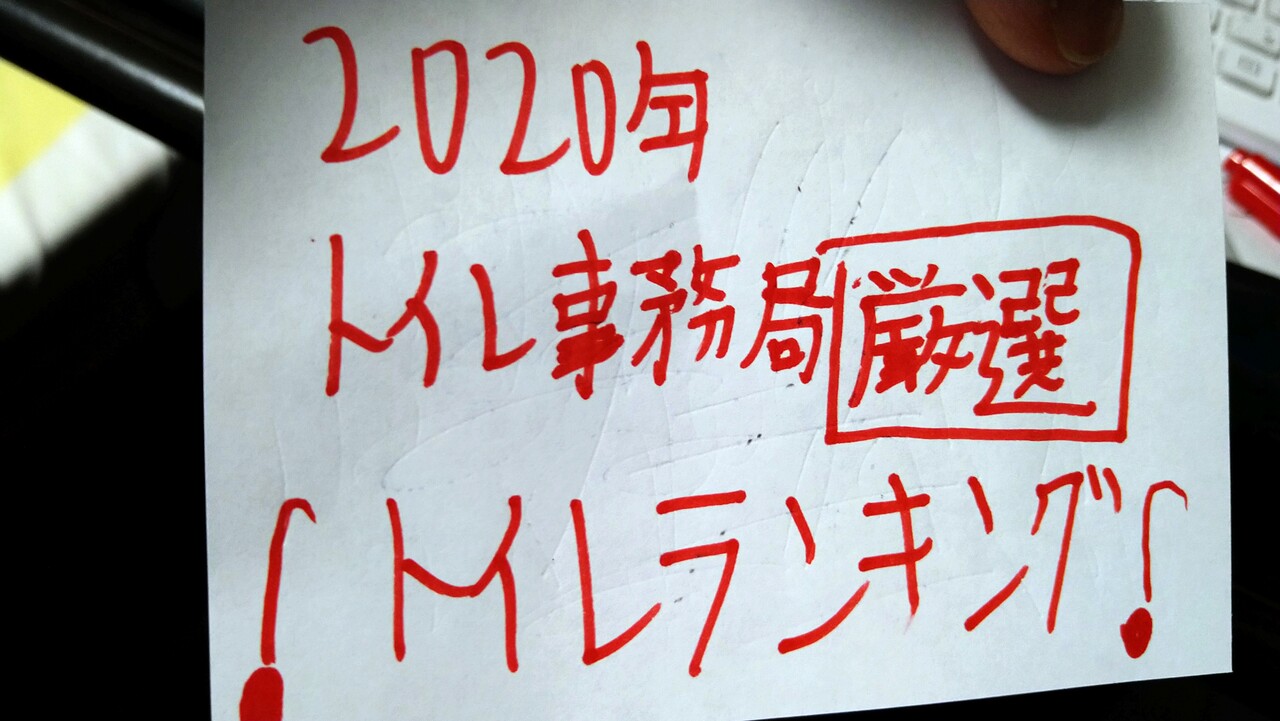 2020年
トイレ事務局厳選
♪トイレランキング♪